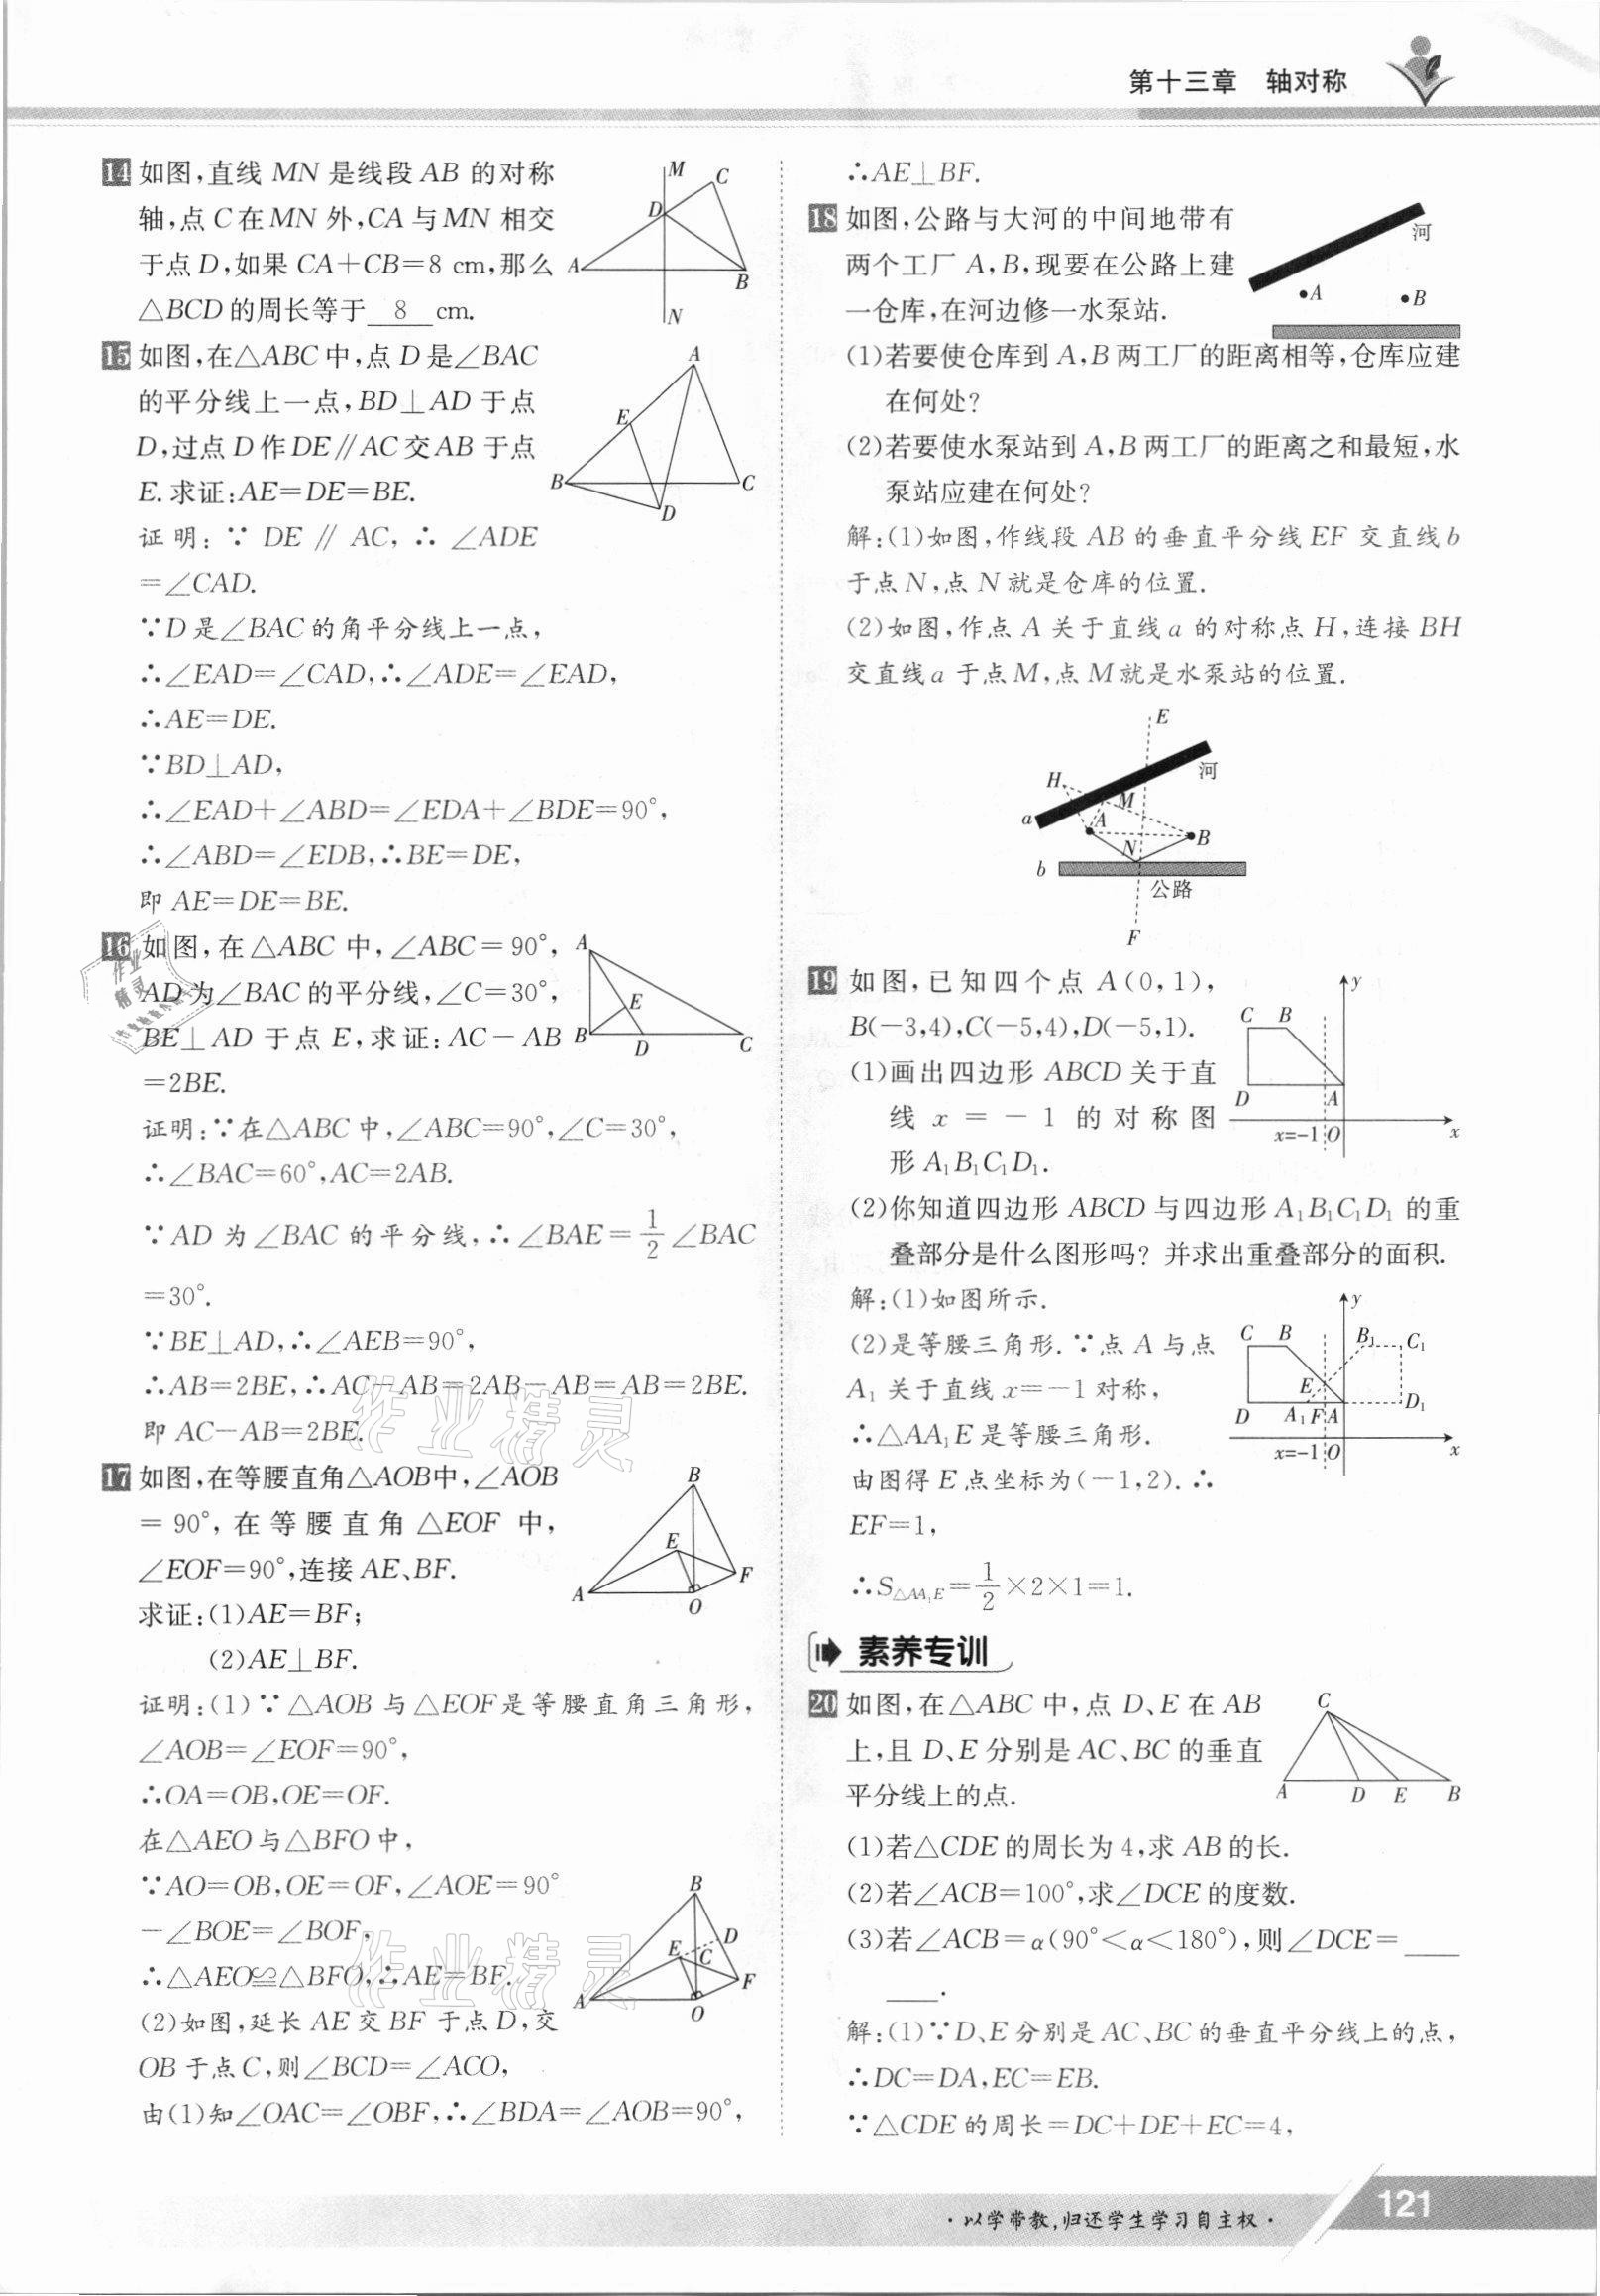 第十三章 轴对称
14 如图,直线 MN 是线段 AB 的对称
轴,点 C 在 MN 外,CA 与 MN 相交
于点 D,如果 CA+CB=8 cm,那么
△BCD 的周长等于 8 cm.
M
C
D
A
B
N
15 如图,在△ABC 中,点 D 是∠BAC
的平分线上一点,BD⊥AD 于点
D,过点 D 作 DE∥AC 交 AB 于点
E.求证:AE=DE=BE.
A
E
B
C
D
证明:∵DE∥AC,∴∠ADE
=∠CAD.
∵D 是∠BAC 的角平分线上一点,
∴∠EAD=∠CAD,∴∠ADE=∠EAD,
∴AE=DE.
∵BD⊥AD,
∴∠EAD+∠ABD=∠EDA+∠BDE=90°,
∴∠ABD=∠EDB,∴BE=DE,
即 AE=DE=BE.
16 如图,在△ABC 中,∠ABC=90°,
AD 为∠BAC 的平分线,∠C=30°,
BE⊥AD 于点 E,求证:AC-AB
=2BE.
A
E
B
D
C
证明:∵在△ABC 中,∠ABC=90°,∠C=30°,
∴∠BAC=60°,AC=2AB.
∵AD 为∠BAC 的平分线,∴∠BAE=1/2∠BAC
=30°.
∵BE⊥AD,∴∠AEB=90°,
∴AB=2BE,∴AC-AB=2AB-AB=AB=2BE.
即 AC-AB=2BE.
17 如图,在等腰直角△AOB中,∠AOB
=90°,在等腰直角△EOF 中,
∠EOF=90°,连接 AE、BF.
求证:(1)AE=BF;
(2)AE⊥BF.
B
E
F
A
O
证明:(1)∵△AOB 与△EOF是等腰直角三角形,
∠AOB=∠EOF=90°,
∴OA=OB,OE=OF.
在△AEO 与△BFO 中,
∵AO=OB,OE=OF,∠AOE=90°
-∠BOE=∠BOF,
∴△AEO≌△BFO,∴AE=BF.
(2)如图,延长 AE 交 BF 于点 D,交
OB 于点 C,则∠BCD=∠ACO,
由(1)知∠OAC=∠OBF,∴∠BDA=∠AOB=90°,
B
D
E
C
F
A
O
∴AE⊥BF.
18 如图,公路与大河的中间地带有
两个工厂 A,B,现要在公路上建
一仓库,在河边修一水泵站.
河
A
B
(1)若要使仓库到 A,B 两工厂的距离相等,仓库应建
在何处?
(2)若要使水泵站到 A,B 两工厂的距离之和最短,水
泵站应建在何处?
解:(1)如图,作线段 AB 的垂直平分线 EF 交直线 b
于点 N,点 N 就是仓库的位置.
(2)如图,作点 A 关于直线 a 的对称点 H,连接 BH
交直线a 于点 M,点 M 就是水泵站的位置.
E
H
河
M
a
A
B
N
b
公路
F
19 如图,已知四个点 A(0,1),
B(-3,4),C(-5,4),D(-5,1).
(1)画出四边形 ABCD 关于直
线 x=-1 的对称图
形 A₁B₁C₁D₁.
y
C B
D A
x=-1 O x
(2)你知道四边形 ABCD 与四边形 A₁B₁C₁D₁ 的重
叠部分是什么图形吗? 并求出重叠部分的面积.
解:(1)如图所示.
(2)是等腰三角形.∵点 A 与点
A₁ 关于直线 x=-1 对称,
∴△AA₁E 是等腰三角形.
由图得 E 点坐标为(-1,2).∴
EF=1,
∴S△AA₁E=1/2×2×1=1.
y
C B B₁ C₁
E
D A₁ F A D₁
x=-1 O x
素养专训
20 如图,在△ABC 中,点 D、E 在 AB
上,且 D、E 分别是 AC、BC 的垂直
平分线上的点.
C
A D E B
(1)若△CDE 的周长为 4,求 AB 的长.
(2)若∠ACB=100°,求∠DCE 的度数.
(3)若∠ACB=α(90°<α<180°),则∠DCE=____
____.
解:(1)∵D、E 分别是 AC、BC 的垂直平分线上的点,
∴DC=DA,EC=EB.
∵△CDE 的周长=DC+DE+EC=4,
·以学带教,归还学生学习自主权·
121
作业精灵
作业精灵
作业精灵